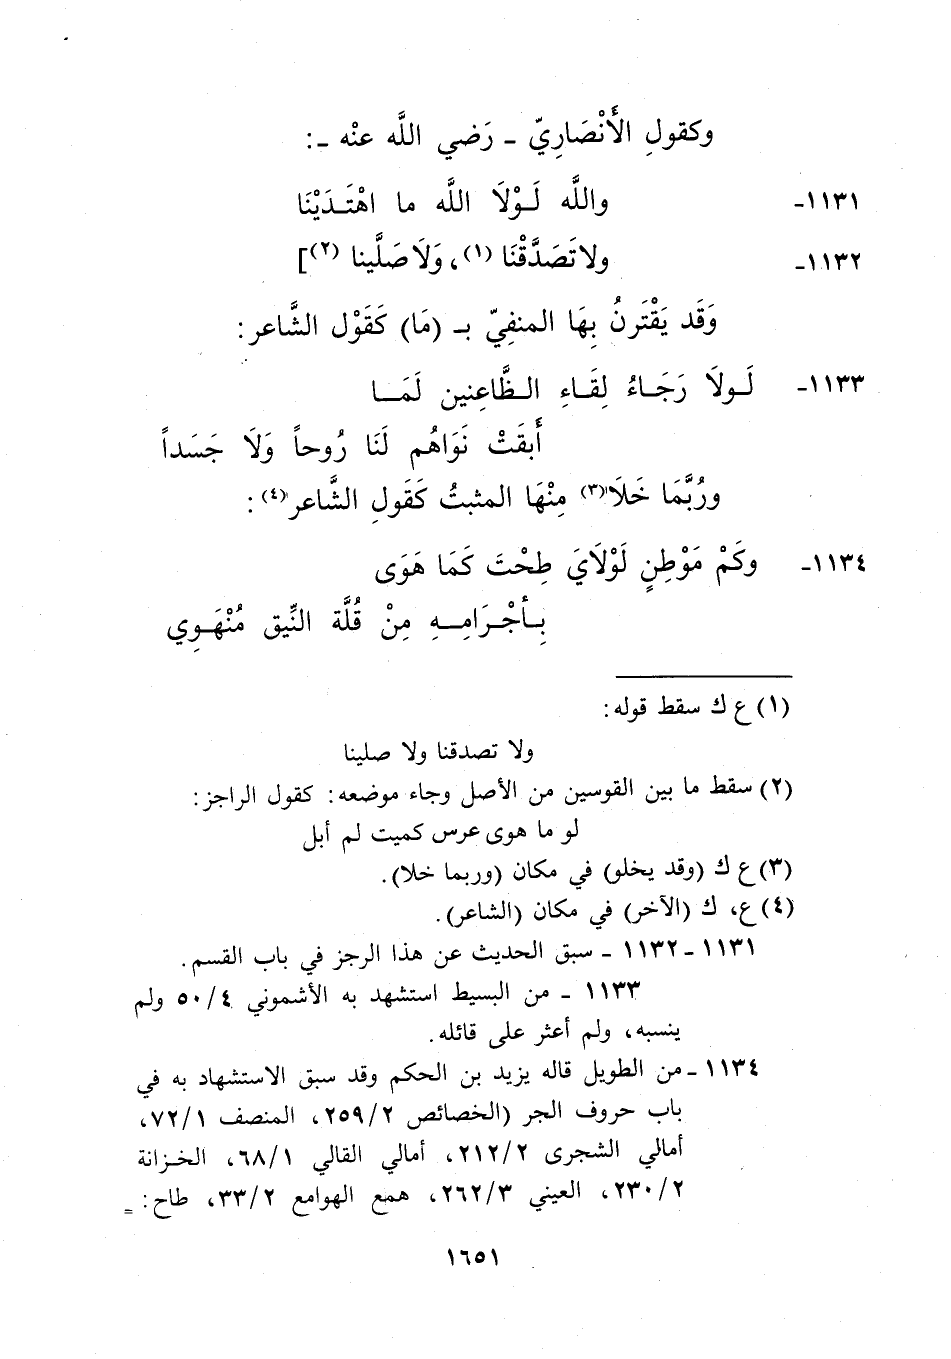 وكقولِ الأَنْصَارِيّ - رَضي اللَّه عنْه -:
١١٣١- واللَّه لَـوْلَا اللَّه ما اهْتَـدَيْنَا
١١٣٢- ولا تَصَدَّقْنَا (١)، وَلَا صَلَّينا (٢)]
وَقَد يَقْتَرنُ بِهَا المنفِيّ بـ (مَا) كَقَوْل الشَّاعر:
١١٣٣- لَـولَا رَجَـاءُ لِقَـاءِ الـظَّاعِنين لَمَـا
أَبقَتْ نَوَاهُم لَنَا رُوحاً وَلَا جَسَداً
ورُبَّمَا خَلَا(٣) مِنْهَا المثبتُ كَقَولِ الشَّاعر(٤):
١١٣٤- وكَمْ مَوْطِنٍ لَوْلَايَ طِحْتَ كَمَا هَوَى
بِـأَجْـرَامِـهِ مِنْ قُلَّة النِّيق مُنْهَـوِي
(١) ع ك سقط قوله:
ولا تصدقنا ولا صلينا
(٢) سقط ما بين القوسين من الأصل وجاء موضعه: كقول الراجز:
لو ما هوى عرس كميت لم أبل
(٣) ع ك (وقد يخلو) في مكان (وربما خلا).
(٤) ع، ك (الآخر) في مكان (الشاعر).
١١٣١-١١٣٢ - سبق الحديث عن هذا الرجز في باب القسم.
١١٣٣ - من البسيط استشهد به الأشموني ٥٠/٤ ولم
ينسبه، ولم أعثر على قائله.
١١٣٤ - من الطويل قاله يزيد بن الحكم وقد سبق الاستشهاد به في
باب حروف الجر (الخصائص ٢٥٩/٢، المنصف ٧٢/١،
أمالي الشجرى ٢١٢/٢، أمالي القالي ٦٨/١، الخـزانة
٢٣٠/٢، العيني ٢٦٢/٣، همع الهوامع ٣٣/٢، طاح: =
١٦٥١